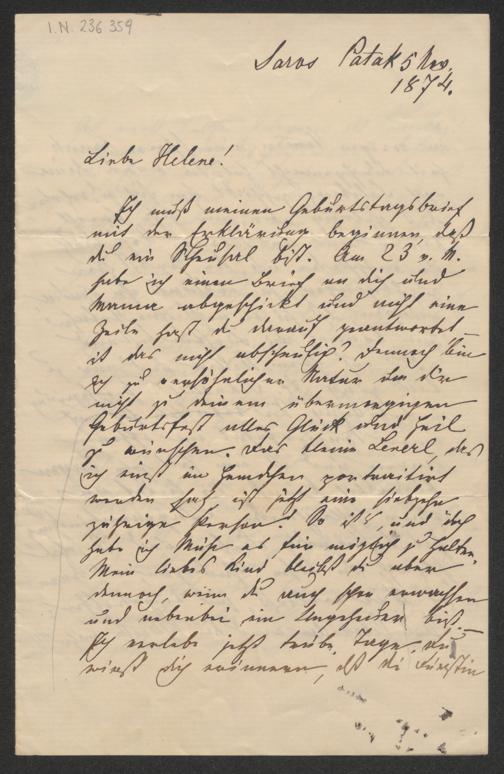 I.N. 236359
Saros Patak 5 Nov.
1874.
Liebe Helene!
Ich muß meinen Geburtstagsbrief
mit der Erklärung beginnen, daß
du ein Scheusal bist. Am 23 v. M.
habe ich einen Brief an dich und
Mama abgeschickt und nicht eine
Zeile hast du darauf geantwortet –
ist das nicht abscheulich? Dennoch bin
ich zu versöhnlicher Natur um dir
nicht zu deinem übermorgigen
Geburtsfest alles Glück und Heil
zu wünschen. Das kleine Lenerl, das
ich einst im Hemdchen portraitirt
werden sah ist jetzt eine siebzehn
jährige Person! So ist's, und doch
habe ich Mühe es für möglich zu halten.
Mein liebes Kind bleibst du aber
dennoch, wenn du auch schon erwachsen
und nebenbei ein Ungeheuer bist. –
Ich verlebe jetzt trübe Tage, du
wirst dich erinnern, daß die Fürstin